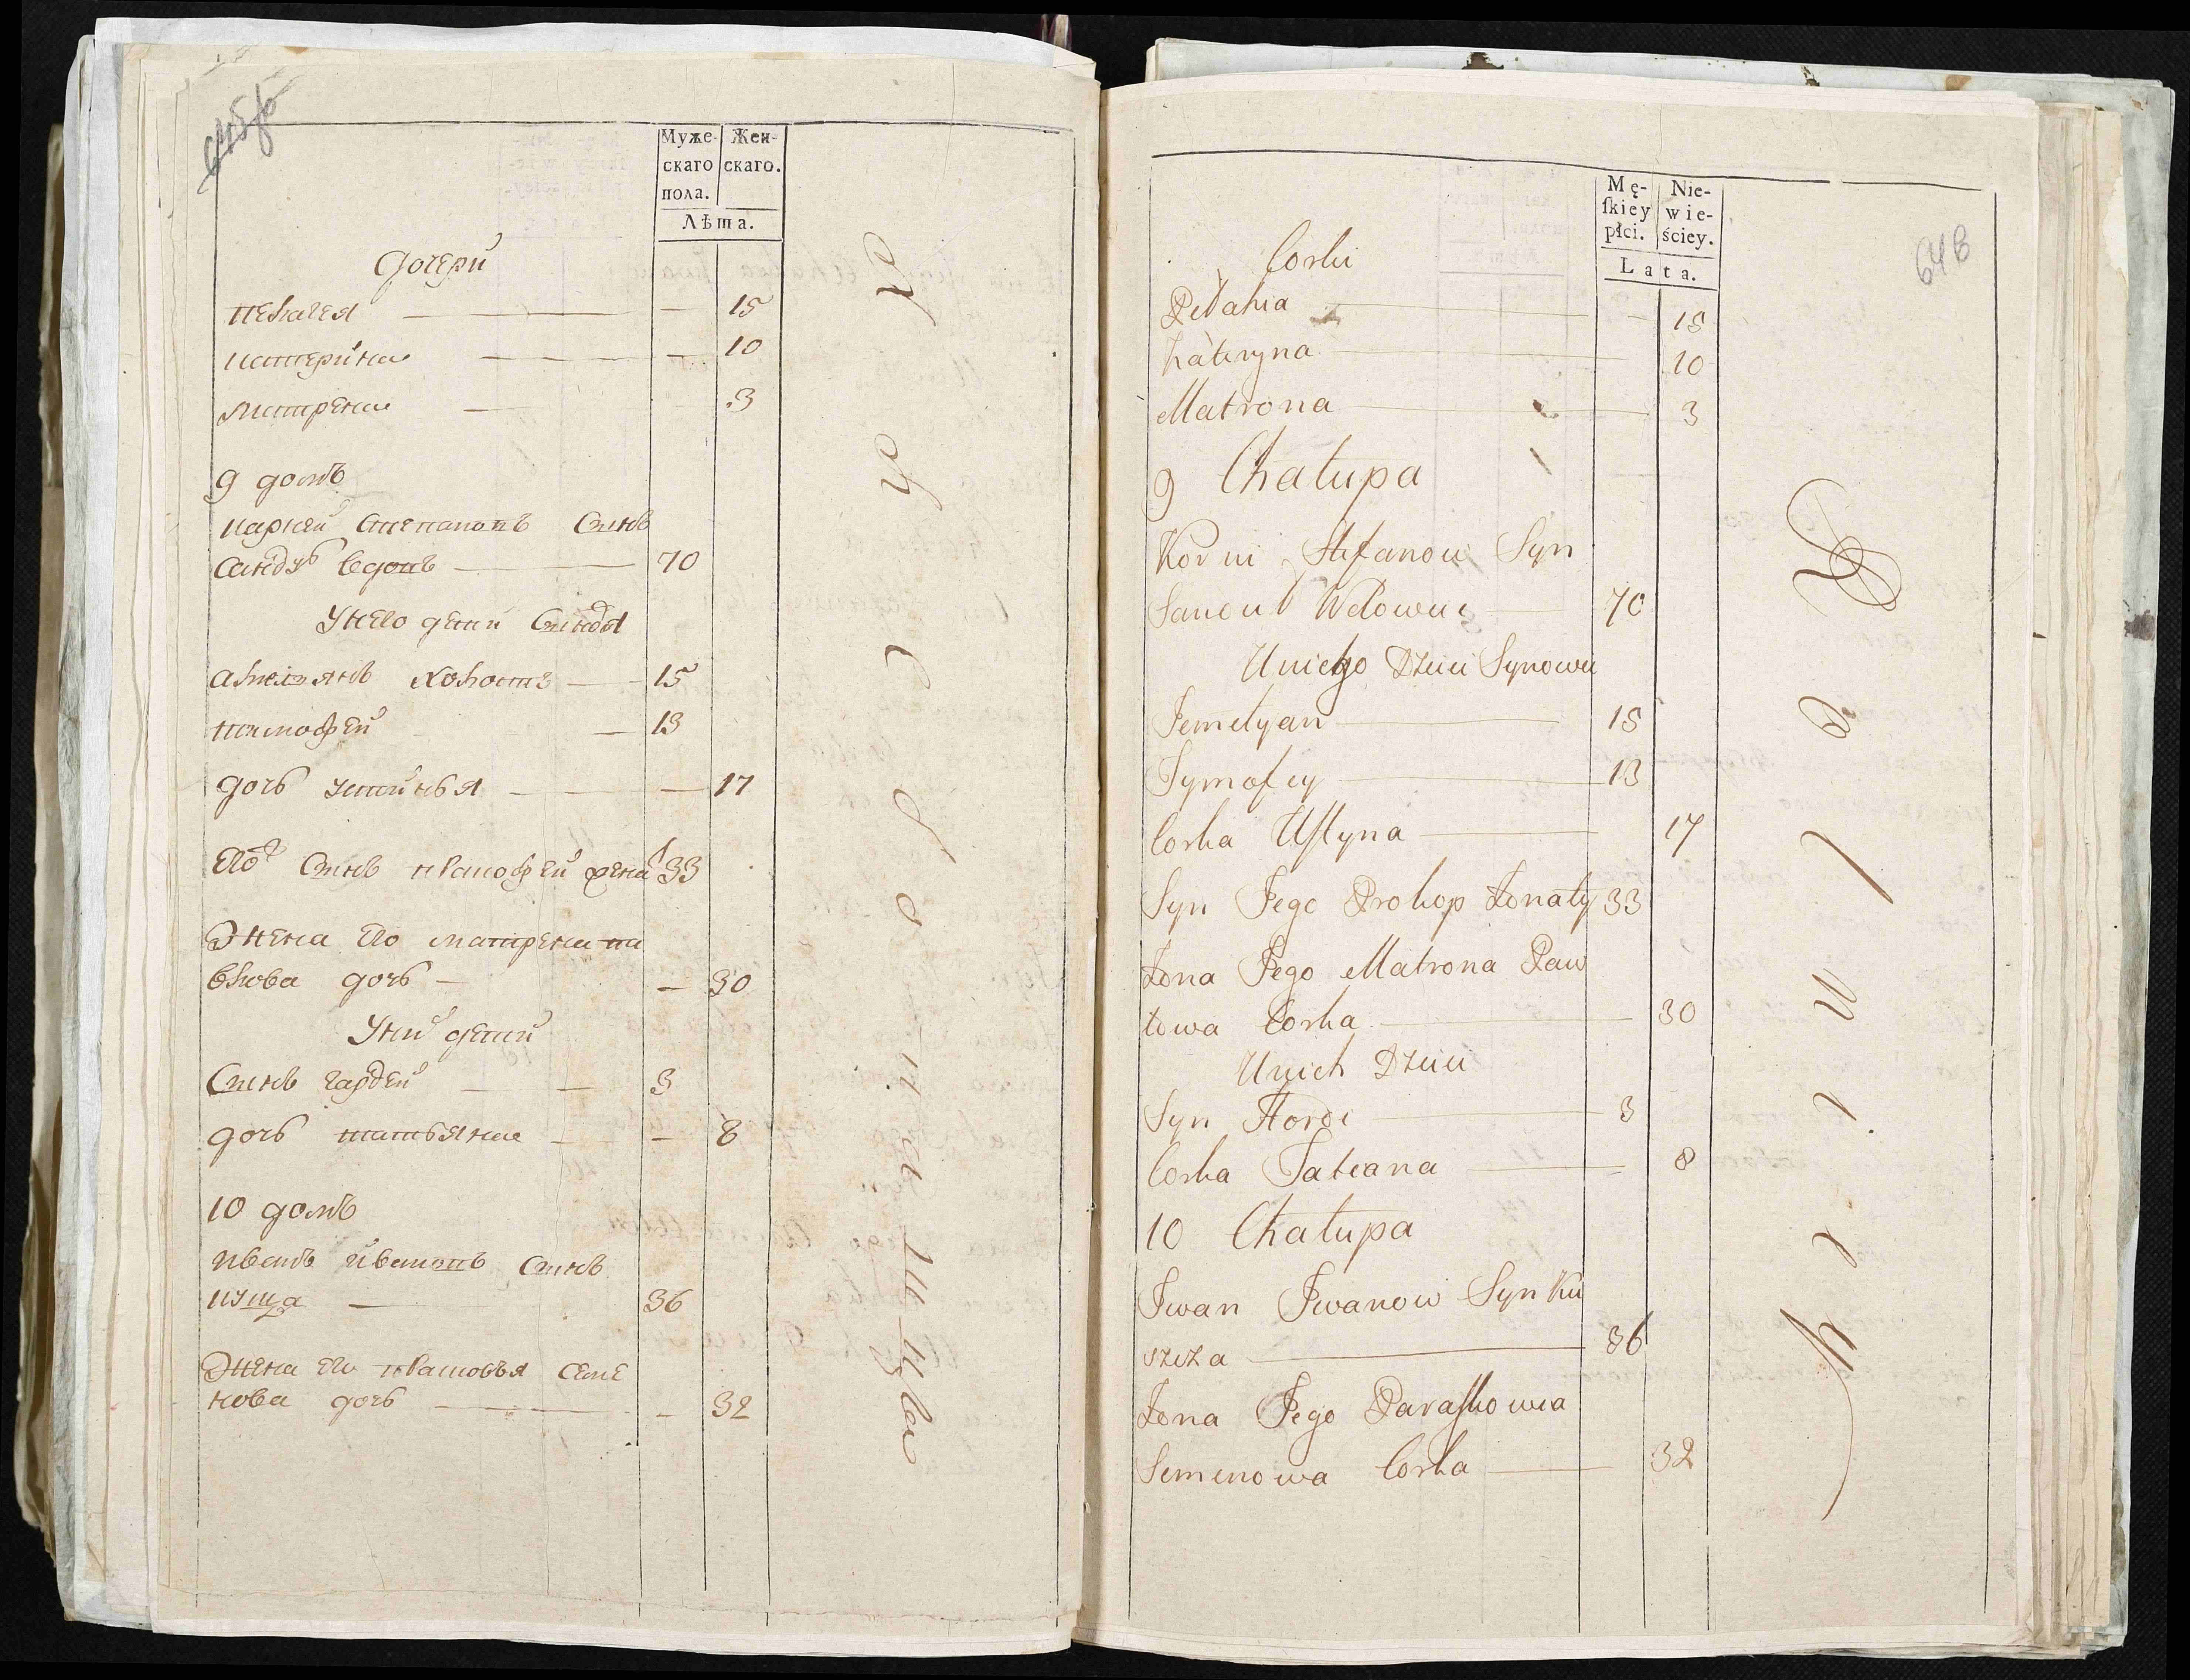 Муже-
скаго
пола.
Жен-
скаго.
Лѣта.
дочери
пелагея — — 15
катерина — — 10
матрена — 3
9 домъ
карней степановъ Сынъ
вдовъ — 70
У него дети Сыновя
амельянъ холостъ — 15
тимофей — 13
дочь устинья — — 17
его Сынъ 33
Жена его матрена па
влова дочь — — 30
У них дети
Сынъ гардей — — 3
дочь татьяна — — 8
10 домъ
иванъ ивановъ Сынъ
куща — 36
Жена его парасковья Семе
нова дочь — — 32
Mę-
ſkiey
płci.
Nie-
wie-
ściey.
Lata.
648
Corki
Pełahia — 15
Kateryna — 10
Matrona — 3
9 Chałupa
Korni Stefanow Syn
Wdowiec — 70
U niego Dzieci Synowie
Jemelyan — 15
Tymofey — 13
Corka Uſtyna — 17
Syn Jego Prokop Żonaty 33
Żona Jego Matrona Paw
łowa Corka — 30
U nich Dzieci
Syn Hordi — 3
Corka Tatiana — 8
10 Chałupa
Jwan Jwanow Syn Ku
szcza — 36
Żona Jego Paraſkowia
Semenowa Corka — 32